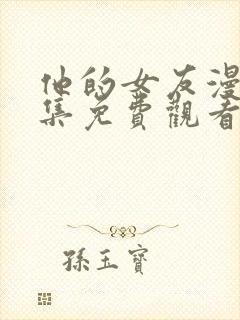 他的女友漫
集免費觀看
孫玉寶